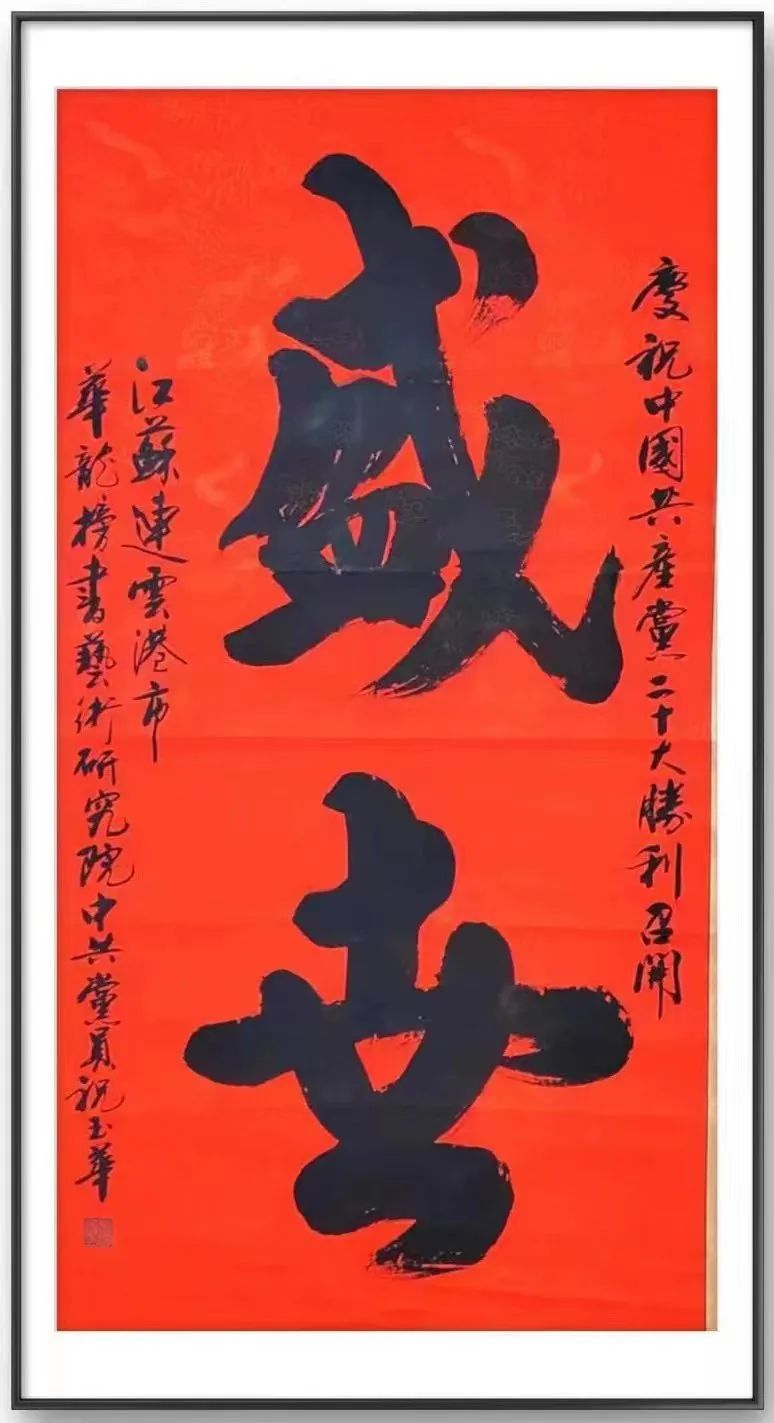 慶祝中國共產黨二十大勝利召開
盛世
江蘇連雲港市
華龍榜書藝術研究院中共黨員祝玉華